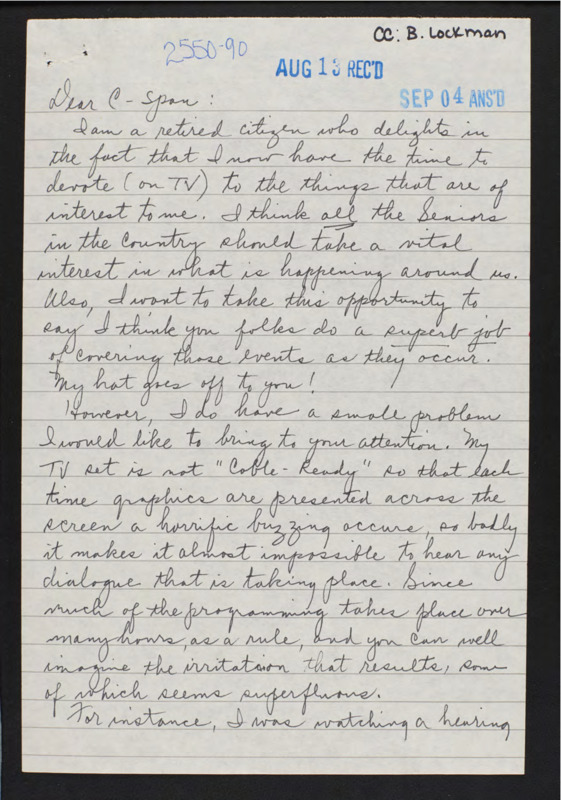 CC: B. Lockman
2550-90
AUG 13 REC'D
SEP 04 ANS'D
Dear C-Span:
I am a retired citizen who delights in
the fact that I now have the time to
devote (on TV) to the things that are of
interest to me. I think all the Seniors
in the Country should take a vital
interest in what is happening around us.
Also, I want to take this opportunity to
say I think you folks do a superb job
of covering those events as they occur.
My hat goes off to you!
However, I do have a small problem
I would like to bring to your attention. My
TV set is not "Cable-Ready" so that each
time graphics are presented across the
screen a horrific buzzing occurs, so badly
it makes it almost impossible to hear any
dialogue that is taking place. Since
much of the programming takes place over
many hours, as a rule, and you can well
imagine the irritation that results, some
of which seems superfluous.
For instance, I was watching a hearing